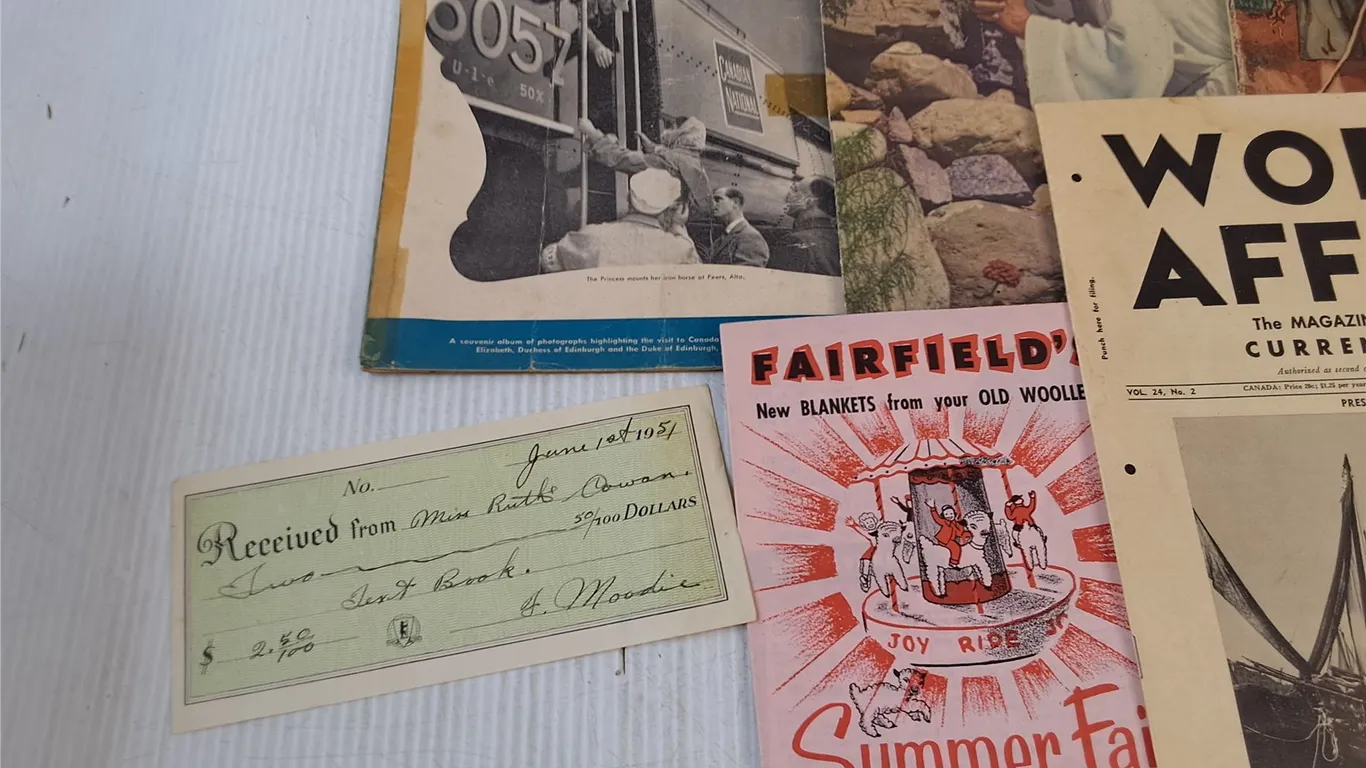 6057
U-1-e
50X
CANADIAN
NATIONAL
The Princess mounts her iron horse at Peers, Alta.
A souvenir album of photographs highlighting the visit to Canada
Elizabeth, Duchess of Edinburgh and the Duke of Edinburgh,
June 1st 1951
No.
Received from Miss Ruth Cowan.
Two 50/100 DOLLARS
Text Book.
$ 2.50/100
Moodie
FAIRFIELD'S
New BLANKETS from your OLD WOOLLE
JOY RIDE
Summer Fai
WO
AFF
The MAGAZIN
CURREN
Authorized as second c
VOL. 24, No. 2
CANADA: Price 20c; $1.25 per year
PRES
Punch here for filing.